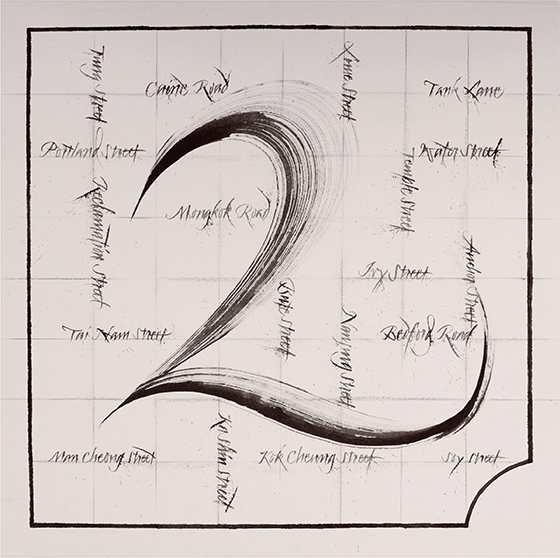 Street
Road
Street
Tank Lane
Portland Street
Water Street
Temple Street
Reclamation Street
Mongkok Road
2
Anchor Street
Ivy Street
Bute Street
Street
Tai Nam Street
Bedford Road
Ka Shin Street
Man Cheong Street
Kok Cheung Street
Soy Street